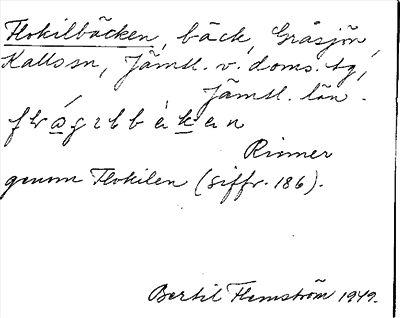 Flokilbäcken, bäck, Gråsjön,
Kallssn, Jämtl. v. doms. tg,
Jämtl. län.
Rinner
genom Flokilen (siffr. 186).
Bertil Flemström 1949.